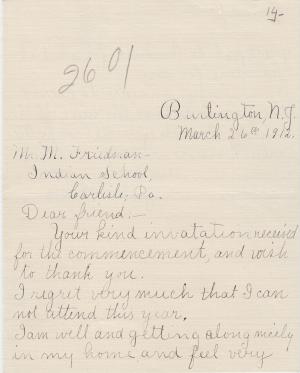 14-
2601
Burlington, N.J.
March 26th 1912.
Mr. M. Friedman-
Indian School,
Carlisle, Pa.
Dear friend:-
Your kind invatation received
for the commencement, and wish
to thank you.
I regret very much that I can
not attend this year.
I am well and getting along nicely
in my home and feel very